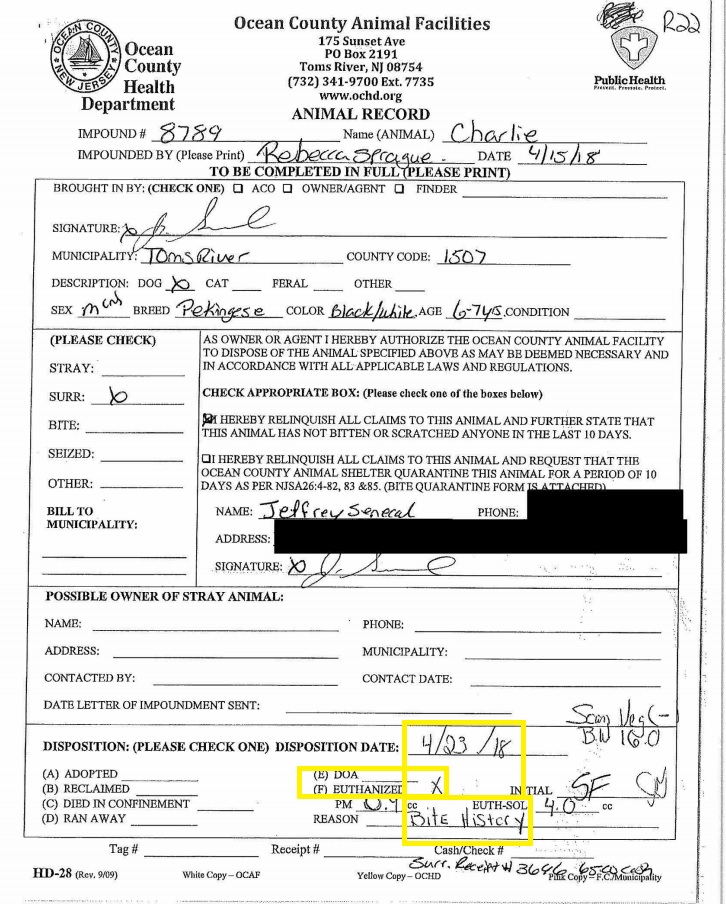 R22
OCEAN COUNTY
NEW JERSEY
Ocean County Health Department
Ocean County Animal Facilities
175 Sunset Ave
PO Box 2191
Toms River, NJ 08754
(732) 341-9700 Ext. 7735
www.ochd.org
PublicHealth
Prevent. Promote. Protect.
ANIMAL RECORD
IMPOUND # 8789 Name (ANIMAL) Charlie
IMPOUNDED BY (Please Print) Rebecca Sprague. DATE 4/15/18
TO BE COMPLETED IN FULL (PLEASE PRINT)
BROUGHT IN BY: (CHECK ONE) ☐ ACO ☐ OWNER/AGENT ☐ FINDER
SIGNATURE: X
MUNICIPALITY: Toms River COUNTY CODE: 1507
DESCRIPTION: DOG X CAT FERAL OTHER
SEX m BREED Pekingese COLOR Black/white AGE 6-7yrs CONDITION
(PLEASE CHECK)
STRAY:
SURR: X
BITE:
SEIZED:
OTHER:
BILL TO
MUNICIPALITY:
AS OWNER OR AGENT I HEREBY AUTHORIZE THE OCEAN COUNTY ANIMAL FACILITY
TO DISPOSE OF THE ANIMAL SPECIFIED ABOVE AS MAY BE DEEMED NECESSARY AND
IN ACCORDANCE WITH ALL APPLICABLE LAWS AND REGULATIONS.
CHECK APPROPRIATE BOX: (Please check one of the boxes below)
☒I HEREBY RELINQUISH ALL CLAIMS TO THIS ANIMAL AND FURTHER STATE THAT
THIS ANIMAL HAS NOT BITTEN OR SCRATCHED ANYONE IN THE LAST 10 DAYS.
☐I HEREBY RELINQUISH ALL CLAIMS TO THIS ANIMAL AND REQUEST THAT THE
OCEAN COUNTY ANIMAL SHELTER QUARANTINE THIS ANIMAL FOR A PERIOD OF 10
DAYS AS PER NJSA26:4-82, 83 &85. (BITE QUARANTINE FORM IS ATTACHED)
NAME: Jeffrey Senecal PHONE:
ADDRESS:
SIGNATURE: X
POSSIBLE OWNER OF STRAY ANIMAL:
NAME: PHONE:
ADDRESS: MUNICIPALITY:
CONTACTED BY: CONTACT DATE:
DATE LETTER OF IMPOUNDMENT SENT:
Scan Neg (-
BW 16.0
DISPOSITION: (PLEASE CHECK ONE) DISPOSITION DATE: 4/23/18
(A) ADOPTED (E) DOA
(B) RECLAIMED (F) EUTHANIZED X INITIAL SF
(C) DIED IN CONFINEMENT PM cc EUTH-SOL 4.0 cc
(D) RAN AWAY REASON Bite History
Tag # Receipt # Cash/Check #
Surr. Receipt # 3646 65.00 cash
HD-28 (Rev, 9/09) White Copy – OCAF Yellow Copy – OCHD Pink Copy – F.C./Municipality